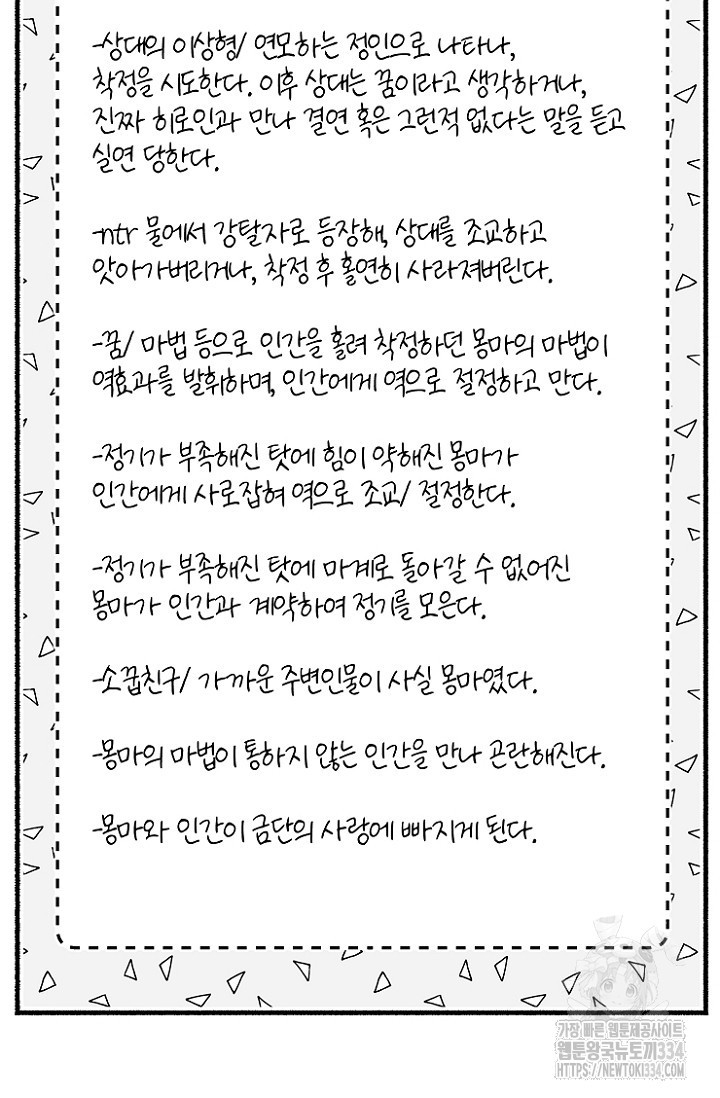 -상대의 이상형/ 연모하는 정인으로 나타나,
착정을 시도한다. 이후 상대는 꿈이라고 생각하거나,
진짜 히로인과 만나 결연 혹은 그런적 없다는 말을 듣고
실연 당한다.
-ntr 물에서 강탈자로 등장해, 상대를 조교하고
앗아가버리거나, 착정 후 홀연히 사라져버린다.
-꿈/ 마법 등으로 인간을 홀려 착정하던 몽마의 마법이
역효과를 발휘하며, 인간에게 역으로 절정하고 만다.
-정기가 부족해진 탓에 힘이 약해진 몽마가
인간에게 사로잡혀 역으로 조교/ 절정한다.
-정기가 부족해진 탓에 마계로 돌아갈 수 없어진
몽마가 인간과 계약하여 정기를 모은다.
-소꿉친구/ 가까운 주변인물이 사실 몽마였다.
-몽마의 마법이 통하지 않는 인간을 만나 곤란해진다.
-몽마와 인간이 금단의 사랑에 빠지게 된다.
가장 빠른 웹툰제공사이트
웹툰왕국뉴토끼334
HTTPS://NEWTOKI334.COM